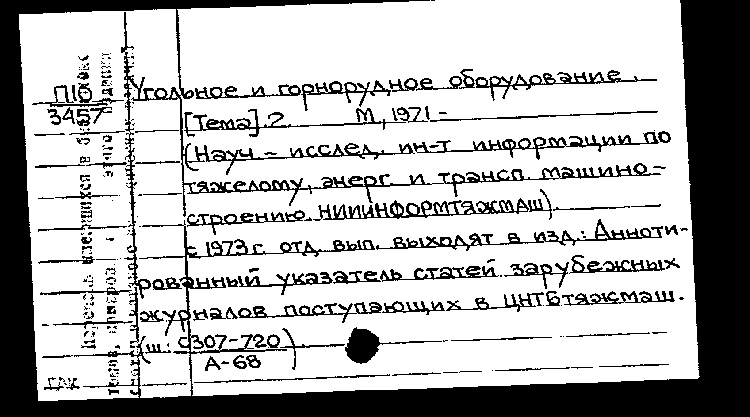 П10
3457
Угольное и горнорудное оборудование.
[Тема].2. М., 1971 -
(Науч - исслед. ин-т информации по
тяжелому, энерг. и трансп. машино-
строению. НИИИНФОРМТЯЖМАШ).
с 1973 г. отд. вып. выходят в изд.: Анноти-
рованный указатель статей зарубежных
журналов поступающих в ЦНТБтяжмаш.
(ш: С307-720)
А-68